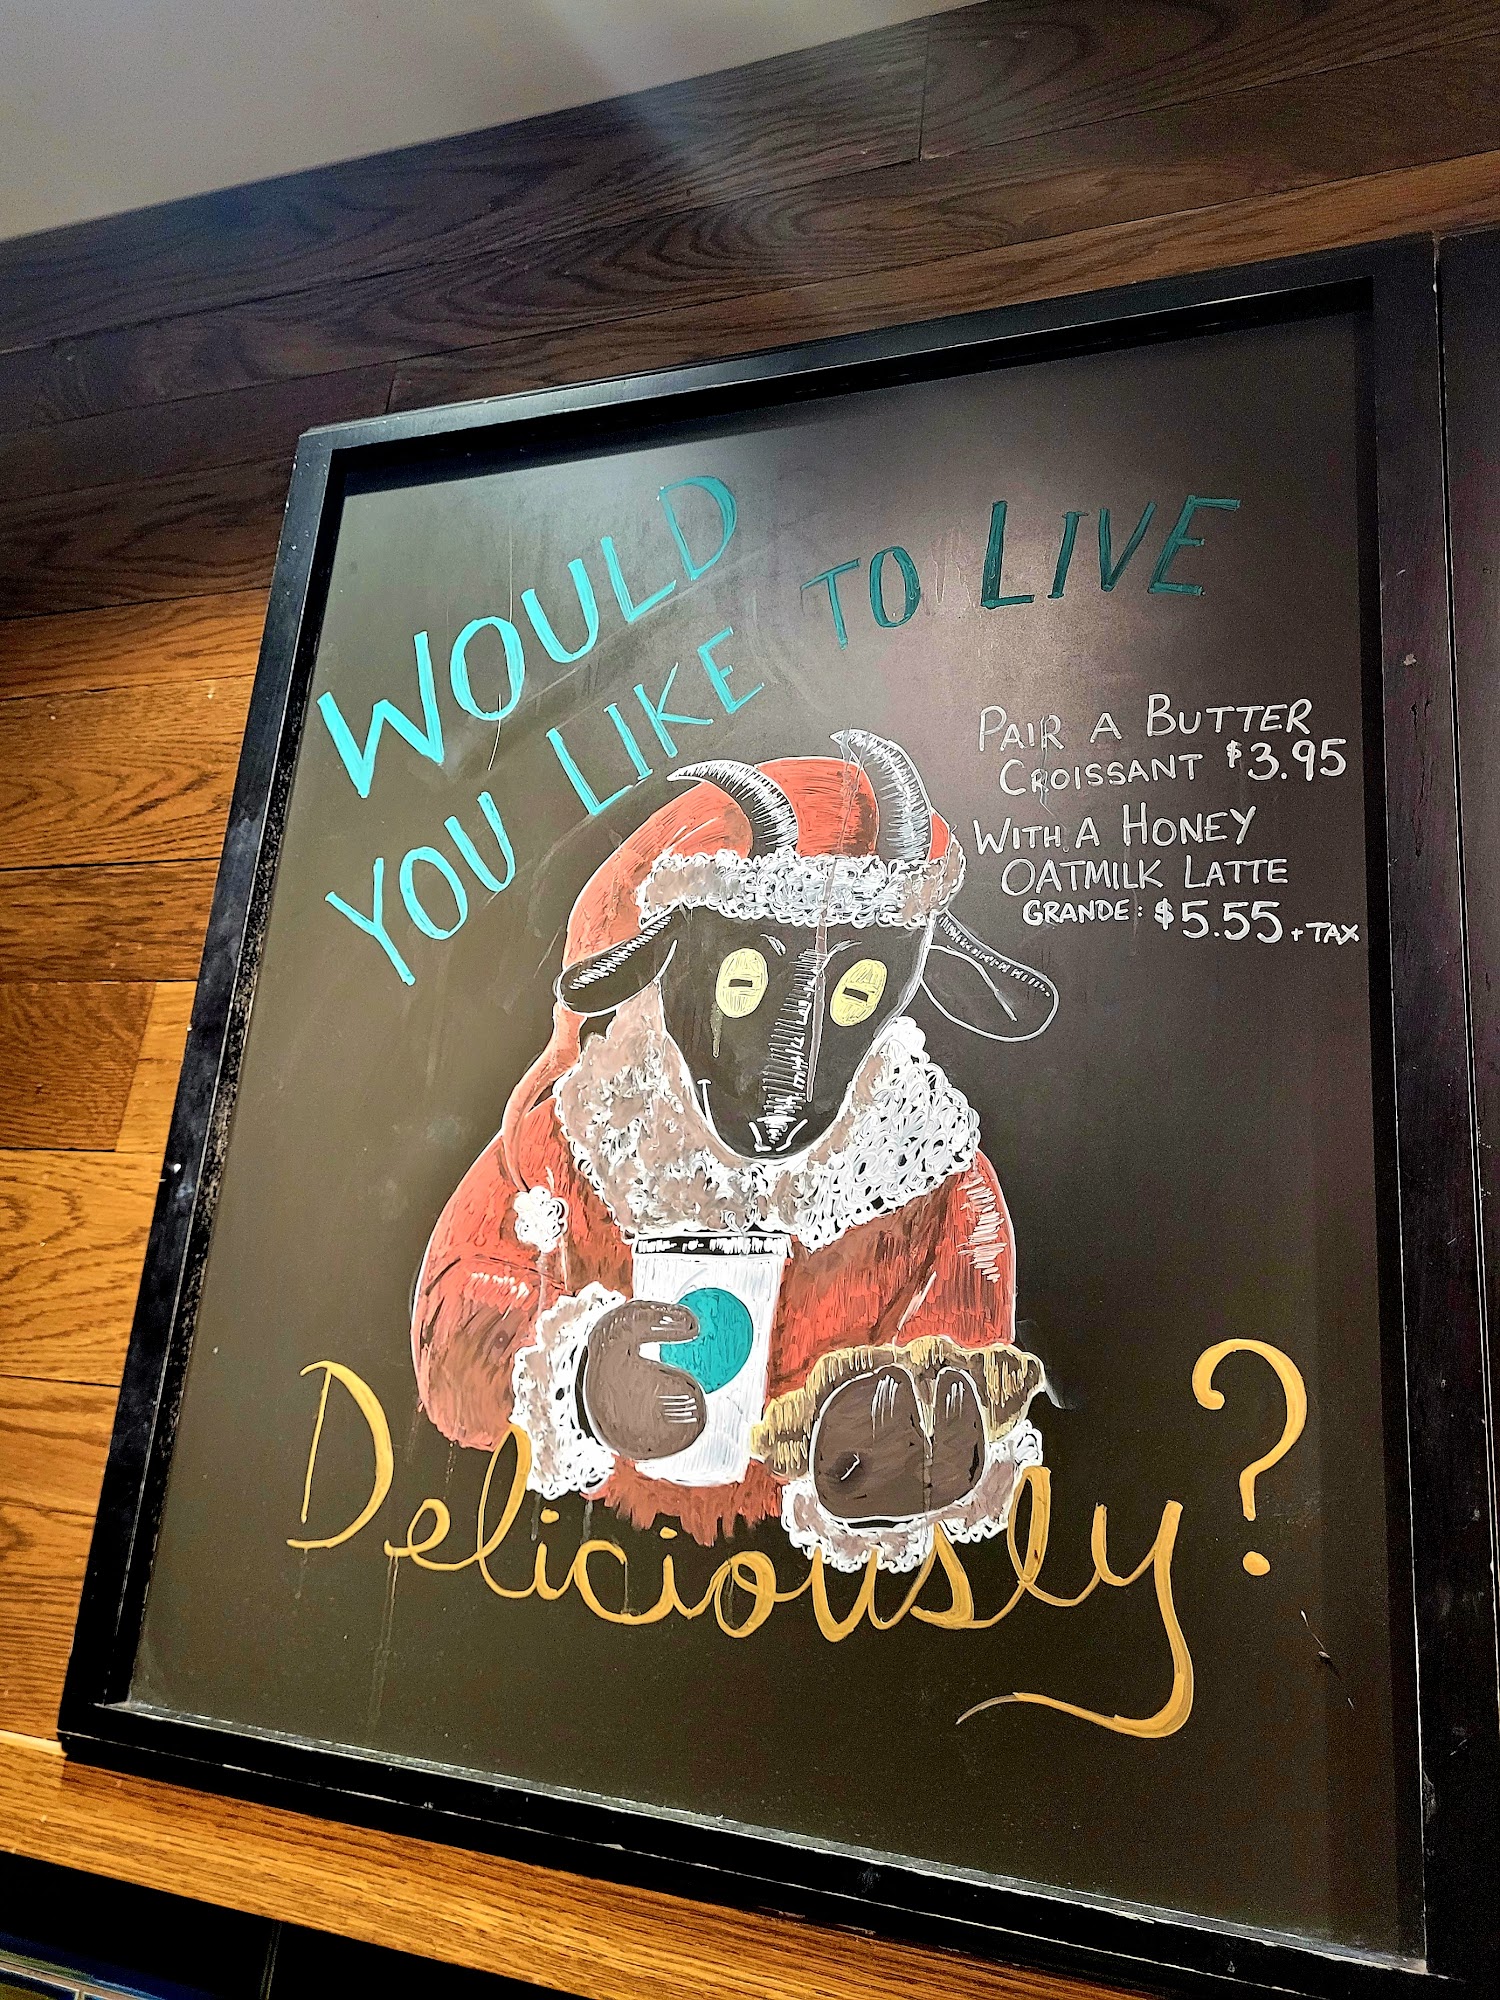 WOULD
YOU LIKE TO LIVE
PAIR A BUTTER
CROISSANT $3.95
WITH A HONEY
OATMILK LATTE
GRANDE: $5.55 + TAX
Deliciously?